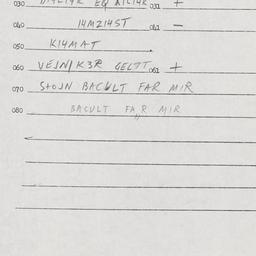 030
040 14M214ST 041 —
050 K14MAT .
060 VEJN/K3R GELTT 061 +
070 STOJN BACULT FAR MIR
080 BACULT FAR MIR